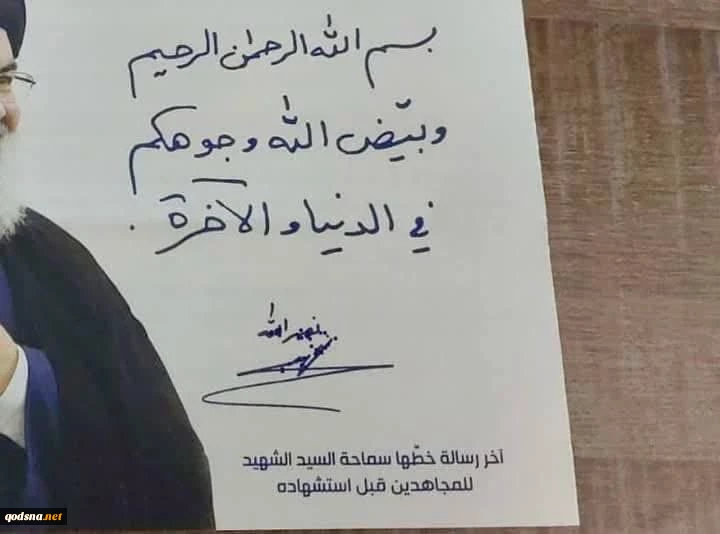 بسم الله الرحمن الرحيم
وبيّض الله وجوهكم
في الدنيا والآخرة.
نصر الله
آخر رسالة خطّها سماحة السيد الشهيد
للمجاهدين قبل استشهاده
qodsna.net